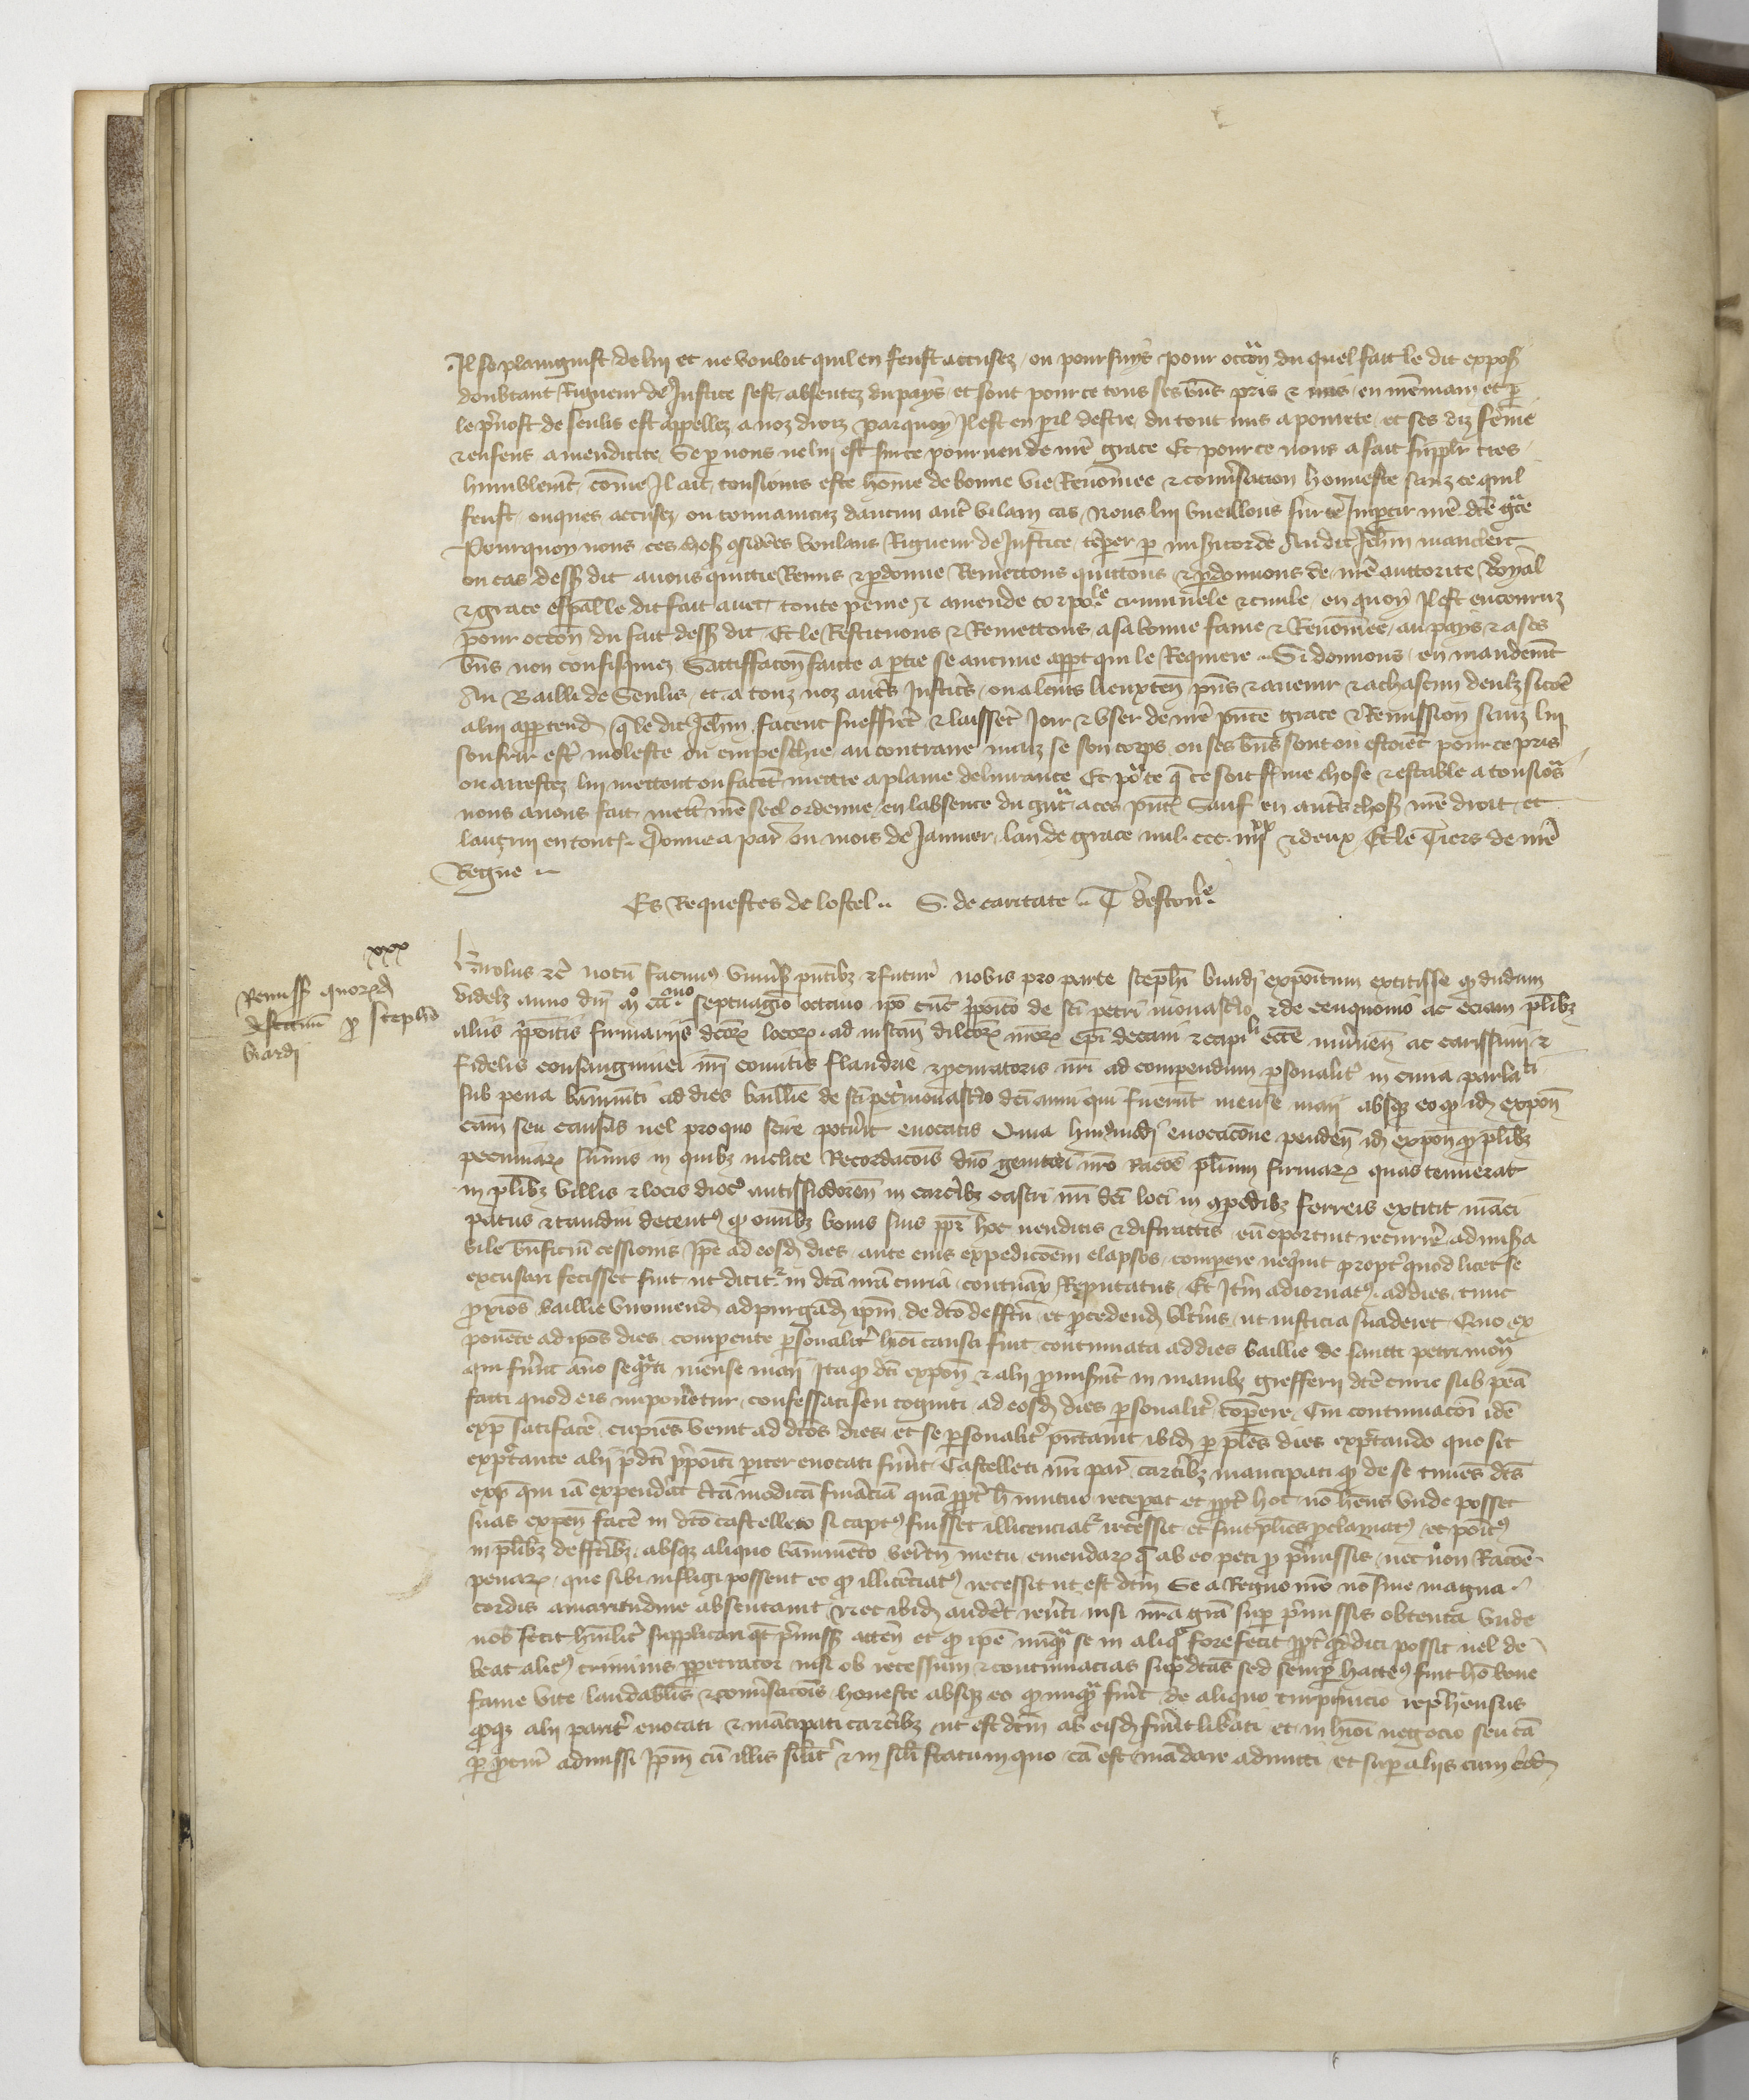 Il se plaingnist de lui et ne vouloit quil en feust accusez ou poursuys pour occon du quel fait le dit expos
doubtant Rigueur de Justice sest absentez du pays et sont pour ce tous ses biens pris & mis en nre main et par
le prevost de senlis est appellez a noz droiz parquoy Il est en peril destre du tout mis a povrete et ses diz feme
& enfens a mendicite Se par nous ne lui est sur ce pourveu de nre grace Et pour ce nous a fait supplier tres
humblemt come Il ait tousiours este home de bonne vie Renomee & conversacion honneste sanz ce quil
feust onques accusez ou convaincuz daucun autre vilain cas Nous lui vueillons sur ce Impartir nre dce grace
Pourquoy nous ces choses considerees voulans Rigueur de Justice temperer par misericorde Au dit Jehan
ou cas dess dit avons quictie Remis & pardonne Remettons quittons & pardonnons de nre auctorite Royal
& grace espal le dit fait avec toute peine & amende corpole criminele & civile en quoy Il est encouruz
pour occon du fait dess dit Et le Restituons & Remettons a sa bonne fame & Renomee au pays & a ses
biens non confisquez Satisfacon faicte a partie se aucune appt qui le Requiere Si donnons en mandemt
Au Bailli de Senlis et a touz noz autres Justiciers ou a leurs lieuxten pns & avenir & a chascun deulz sicoe
a lui appartendra que le dit Jehan facent sueffrent & laissent Joir & user de nre pnte grace & Remission sanz lui
soufrir estre moleste ou empeschie au contraire maiz se son corps ou ses biens sont ou estoient pour ce pris
ou arrestez lui mettent ou facent mettre a plaine delivrance Et pour ce que ce soit ferme chose & estable a tousiours
nous avons fait mettre nre seel ordenne en labsence du grant a ces pntes Sauf en autres choses nre droit et
lautrui en toutes. Donne a par ou mois de Janvier lan de grace mil. ccc. iiiixx & deux Et le Tiers de nre
Regne
Es Requestes de lostel S. de caritate T. destouve
xxx
Remiss quorumd
defectuum pro Steph
biardi
Karolus &c notum facimus universis pntibz & futur nobis pro parte Stephi biardi expoitum extitisse qd dudum
videlz anno dni mo cccmo septuagio octavo ipo tunc pposito de sti petri monasto & de ac eciam plibz
aliis ppositis firmariis dcorum locorum ad instan dilcorum nrorum epi decani & capli ecce nivernen ac carissimi &
fidelis consanguinei nri comitis flandrie & pcuratoris nri ad comperendum psonalit in curia parlati
sub pena banimti ad dies baillie de sti petri monasto dci anni qui fuerunt mense maij absqz eo qd idem expon
cam seu causas vel pro quo scire potuit evocatis Qua hui evocacone penden idem expon pro plibz
pecuniarum sumis in quibz inclite Recordacois dno genitori nro racoe plium firmarum quas tenuerat
in plibz villis & locis dioc autissiodoren in carcibz castri nri dci loci in conpedibz ferreis extitit manci
patus & tamdiu detentus qd omibz bonis suis ppt hoc venditis & distractis eum oportuit recurre ad misa
bile bnficium cessionis Ipe ad eosd dies ante eius expedicoem elapsos compere nequivit propt quod licet se
excusari fecisset fuit ut dicitr in dta nra curia contumax Reputatus Et Itm adiornatus ad dies tunc
proximos baillie viromend ad purgand ipm de dto defftu et procedend ultius ut iusticia suaderet Quo ex
ponente ad ipos dies comperente personalit huioi causa fuit continuata ad dies baillie de sancti petri mon
qui fuerunt anno sequti mense maij Ita qd dti expon & alij promiserunt in manibz grefferij dce curie sub pena
facti quod eis imponetur confessati seu cogniti ad eosd dies personalit compere Cui continuacoi ide
exp satisface cupiens venit ad dtos dies et se personalit pntavit ibid per ples dies expectando quo sit
exptante alij pdti ppositi pariter evocati fuerunt Castelleti nri par carcibz mancipati qd de se timens dts
exp qui ia expenderat tam modicam financiam quam ppt hoc mutuo receperat et ppt hoc no hens unde posset
suas expen face in dto castelleto si captus fuisset illicenciatus recessit et fuit ples proclamatus et positus
in plibz deffectibz absqz aliquo banimento veritn metu emendarum que ab eo peti pro pmissis nec non Racoe
penarum que sibi infligi possent eo qd illicenciatus recessit ut est dtm Se a Regno nro no sine magna
cordis amaritudine absentavit nec ibid audet reverti nisi nra gra sup pmissis obtenta unde
nob fecit humilit supplicari qt pmiss atten et qd ipe nunqua se in aliquo forefecit ppt qd dici possit vel de
beat alicus criminis ppetrator nisi ob recessum & contumacias supdtas sed semper hactenus fuit ho bone
fame vite laudabilis & conversacois honeste absqz eo qd nunqua fuit de aliquo turpi vicio reprehensus
qd qz alij parit evocati & mancipati carcibz ut est dtm ab eisd fuerunt liberati et in huioi negocio seu ca
per pcuratorem admissi Ipm cum illis similit & in simili statu in quo ca est mandare admitti et super aliis cum eod